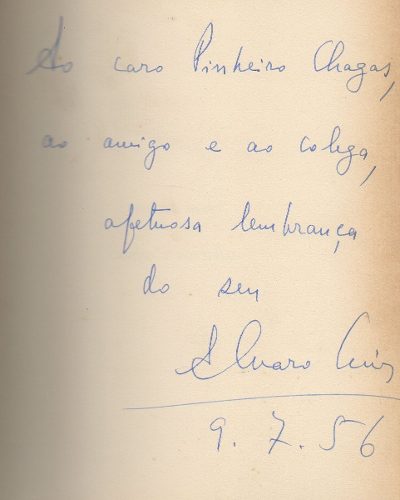 Ao caro Pinheiro Chagas,
ao amigo e ao colega,
afetuosa lembrança
do seu
Alvaro Lins
9.7.56